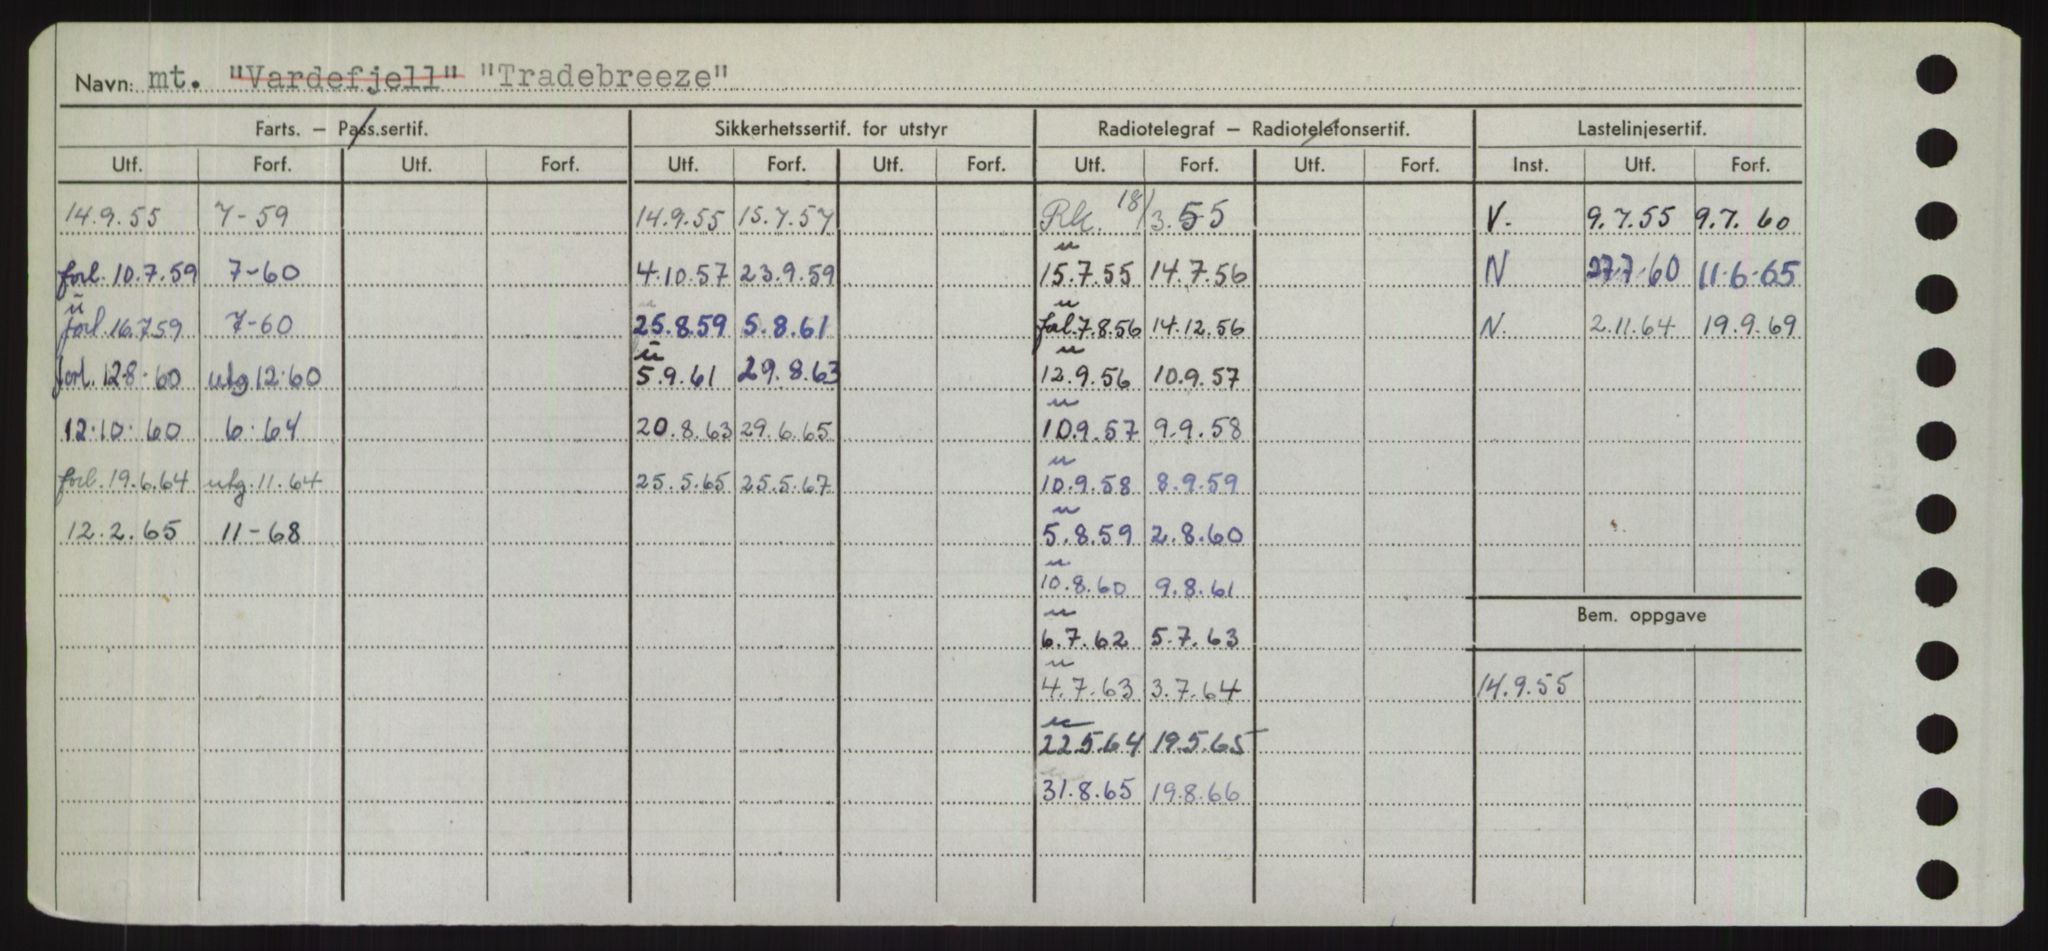 Navn: mt. "Vardefjell" "Tradebreeze"
Farts. – Pass.sertif. Sikkerhetssertif. for utstyr Radiotelegraf – Radiotelefonsertif. Lastelinjesertif.
Utf. Forf. Utf. Forf. Utf. Forf. Utf. Forf. Utf. Forf. Utf. Forf. Inst. Utf. Forf.
14.9.55 7-59 14.9.55 15.7.57 Rk. 18/3.55 V. 9.7.55 9.7.60
forl. 10.7.59 7-60 4.10.57 23.9.59 u 15.7.55 14.7.56 N 27.7.60 11.6.65
ü forl. 16.7.59 7-60 25.8.59 5.8.61 u forl. 7.8.56 14.12.56 N. 2.11.64 19.9.69
forl. 12.8.60 utg 12.60 ü 5.9.61 29.8.63 u 12.9.56 10.9.57
12.10.60 6.64 20.8.63 29.6.65 u 10.9.57 9.9.58
forl. 19.6.64 utg. 11.64 25.5.65 25.5.67 u 10.9.58 8.9.59
12.2.65 11-68 u 5.8.59 2.8.60
u 10.8.60 9.8.61
Bem. oppgave
u 6.7.62 5.7.63
u 4.7.63 3.7.64 14.9.55
u 22.5.64 19.5.65
31.8.65 19.8.66